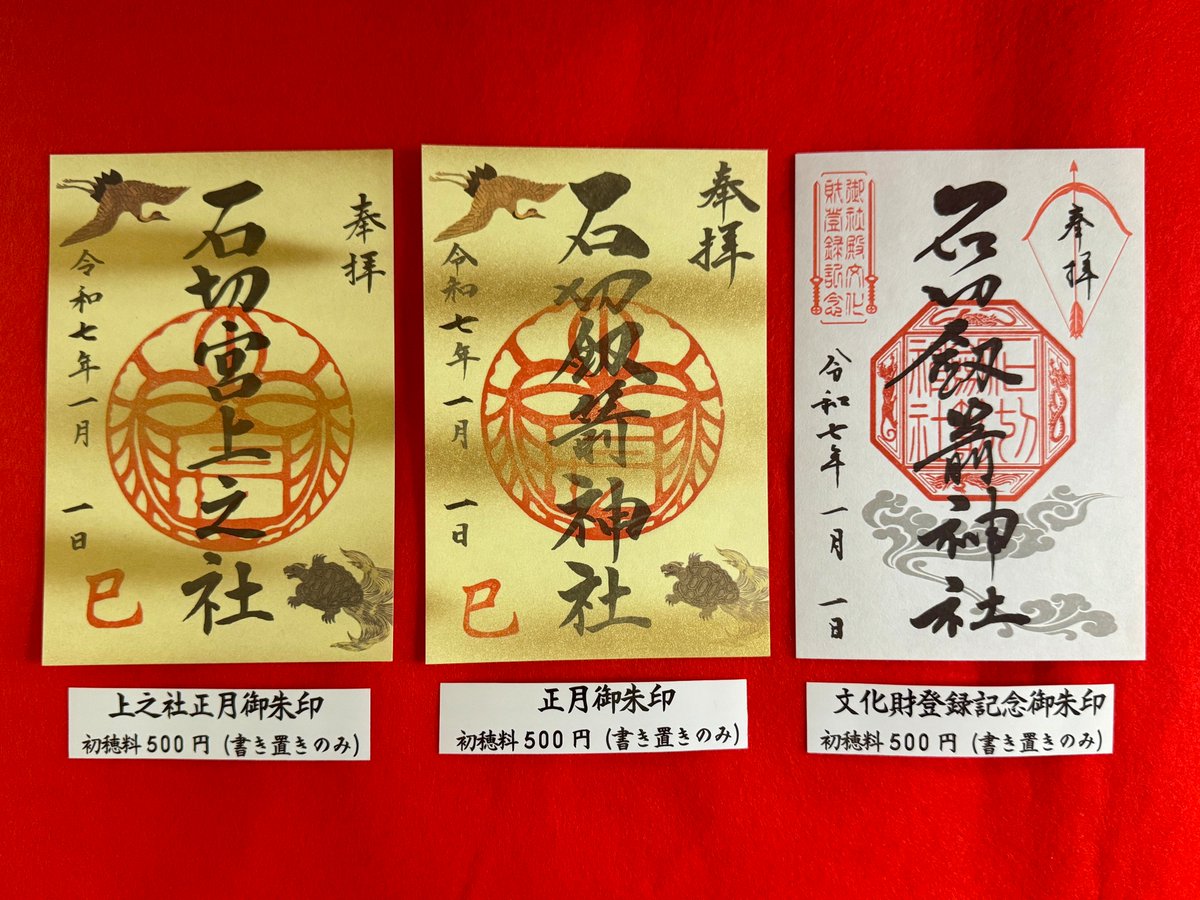 奉拝
石切宮上之社
令和七年一月一日
巳
上之社正月御朱印
初穂料500円(書き置きのみ)
奉拝
石切劔箭神社
令和七年一月一日
巳
正月御朱印
初穂料500円(書き置きのみ)
奉拝
石切劔箭神社
御社殿文化
財登録記念
令和七年一月一日
文化財登録記念御朱印
初穂料500円(書き置きのみ)